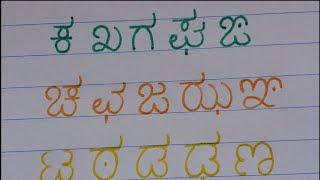 ಕ ಖ ಗ ಘ ಙ
ಚ ಛ ಜ ಝ ಞ
ಟ ಠ ಡ ಢ ಣ